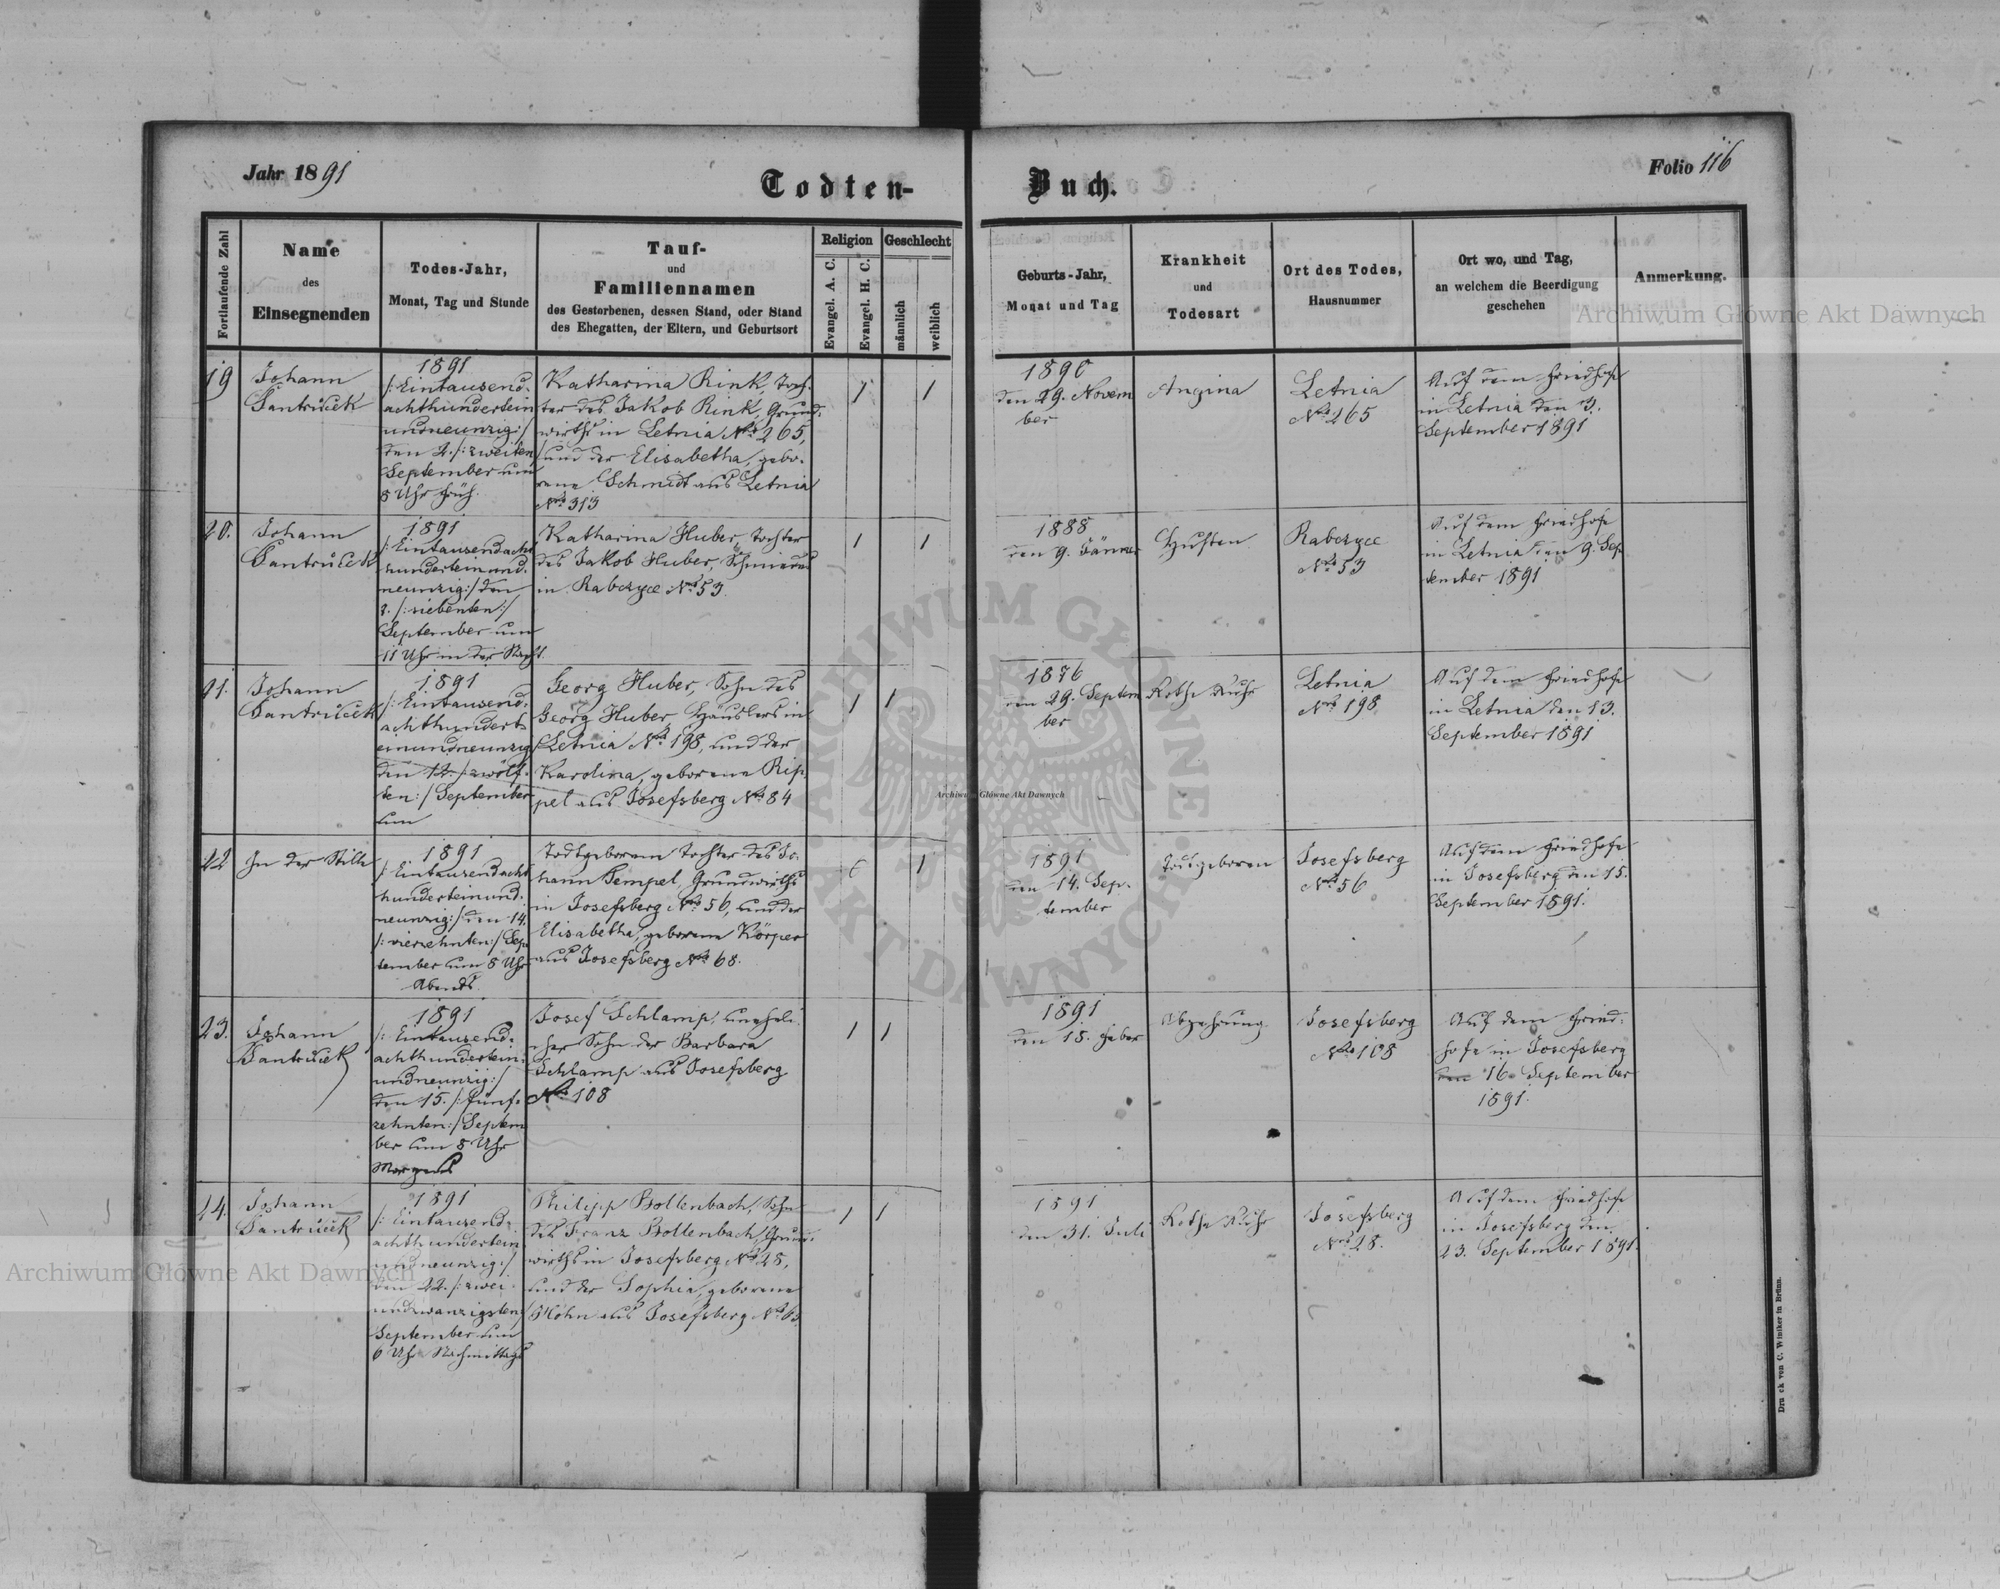 Jahr 1891
Todten-
Buch.
Folio 116
Fortlaufende Zahl
Name
des
Einsegnenden
Todes-Jahr,
Monat, Tag und Stunde
Tauf-
und
Familiennamen
des Gestorbenen, dessen Stand, oder Stand
des Ehegatten, der Eltern, und Geburtsort
Religion
Evangel. A. C.
Evangel. H. C.
Geschlecht
männlich
weiblich
Geburts-Jahr,
Monat und Tag
Krankheit
und
Todesart
Ort des Todes,
Hausnummer
Ort wo, und Tag,
an welchem die Beerdigung
geschehen
Anmerkung.
19
Johann
1891
/: Eintausend-
achthundertein
undneunzig :/
den 2. /: zweiten
September um
8 Uhr früh.
Katharina Rink, Toch-
ter des Jakob Rink, Grund-
wirths in Letnia No 265,
und der Elisabetha, gebo-
rene Schmidt aus Letnia
No 313
1
1
1890
den 29. Novem
ber
Angina
Letnia
No 265
Auf dem Friedhofe
in Letnia den 3.
September 1891
20.
Johann
1891
/: Eintausendacht
hunderteinund-
neunzig :/ den
7. /: siebenten :/
September um
11 Uhr in der Nacht.
Katharina Huber, Tochter
des Jakob Huber, Schmiedes
in Rabczyce No 53
1
1
1888
den 9. Jänner
Husten
Rabczyce
No 53
Auf dem Friedhofe
in Letnia den 9. Sep
tember 1891
21.
Johann
1891
/: Eintausend-
achthundert-
einundneunzig
den 12. /: zwölf-
ten :/ September
um
Georg Huber, Sohn des
Georg Huber, Häuslers in
Letnia No 198, und der
Karolina, geborene Rip-
pel aus Josefsberg No 84
1
1
1876
den 29. Septem
ber
Rothe Ruhr
Letnia
No 198
Auf dem Friedhofe
in Letnia den 13.
September 1891
22
In der Stille
1891
/: Eintausendacht
hunderteinund-
neunzig :/ den 14.
/: vierzehnten :/ Sep
tember um 8 Uhr
Abends.
Todtgeborene Tochter des Jo-
hann Tempel, Grundwirths
in Josefsberg No 56, und der
Elisabetha, geborene Körper
aus Josefsberg No 68.
1
1891
den 14. Sep-
tember
Todtgeboren
Josefsberg
No 56
Auf dem Friedhofe
in Josefsberg den 15.
September 1891.
23.
Johann
1891
/: Eintausend-
achthundertein-
undneunzig :/
den 15. /: fünf-
zehnten :/ Septem
ber um 8 Uhr
Morgens
Josef Schlamp, uneheli-
cher Sohn der Barbara
Schlamp aus Josefsberg
No 108
1
1
1891
den 18. Feber
Abzehrung
Josefsberg
No 108
Auf dem Fried-
hofe in Josefsberg
den 16. September
1891.
24.
Johann
1891
/: Eintausend-
achthundertein
undneunzig :/
den 22. /: zwei-
undzwanzigsten :/
September um
6 Uhr Nachmittags
Philipp Bollenbach, Sohn
des Franz Bollenbach, Grund-
wirths in Josefsberg No 28,
und der Sophia, geborene
Mohn aus Josefsberg
1
1
1891
den 31. Juli
Rothe Ruhr
Josefsberg
No 28.
Auf dem Friedhofe
in Josefsberg den
23. September 1891.
Druck von C. Winiker in Brünn.
Archiwum Główne Akt Dawnych
Archiwum Główne Akt Dawnych
Archiwum Główne Akt Dawnych
ARCHIWUM GŁÓWNE
AKT DAWNYCH